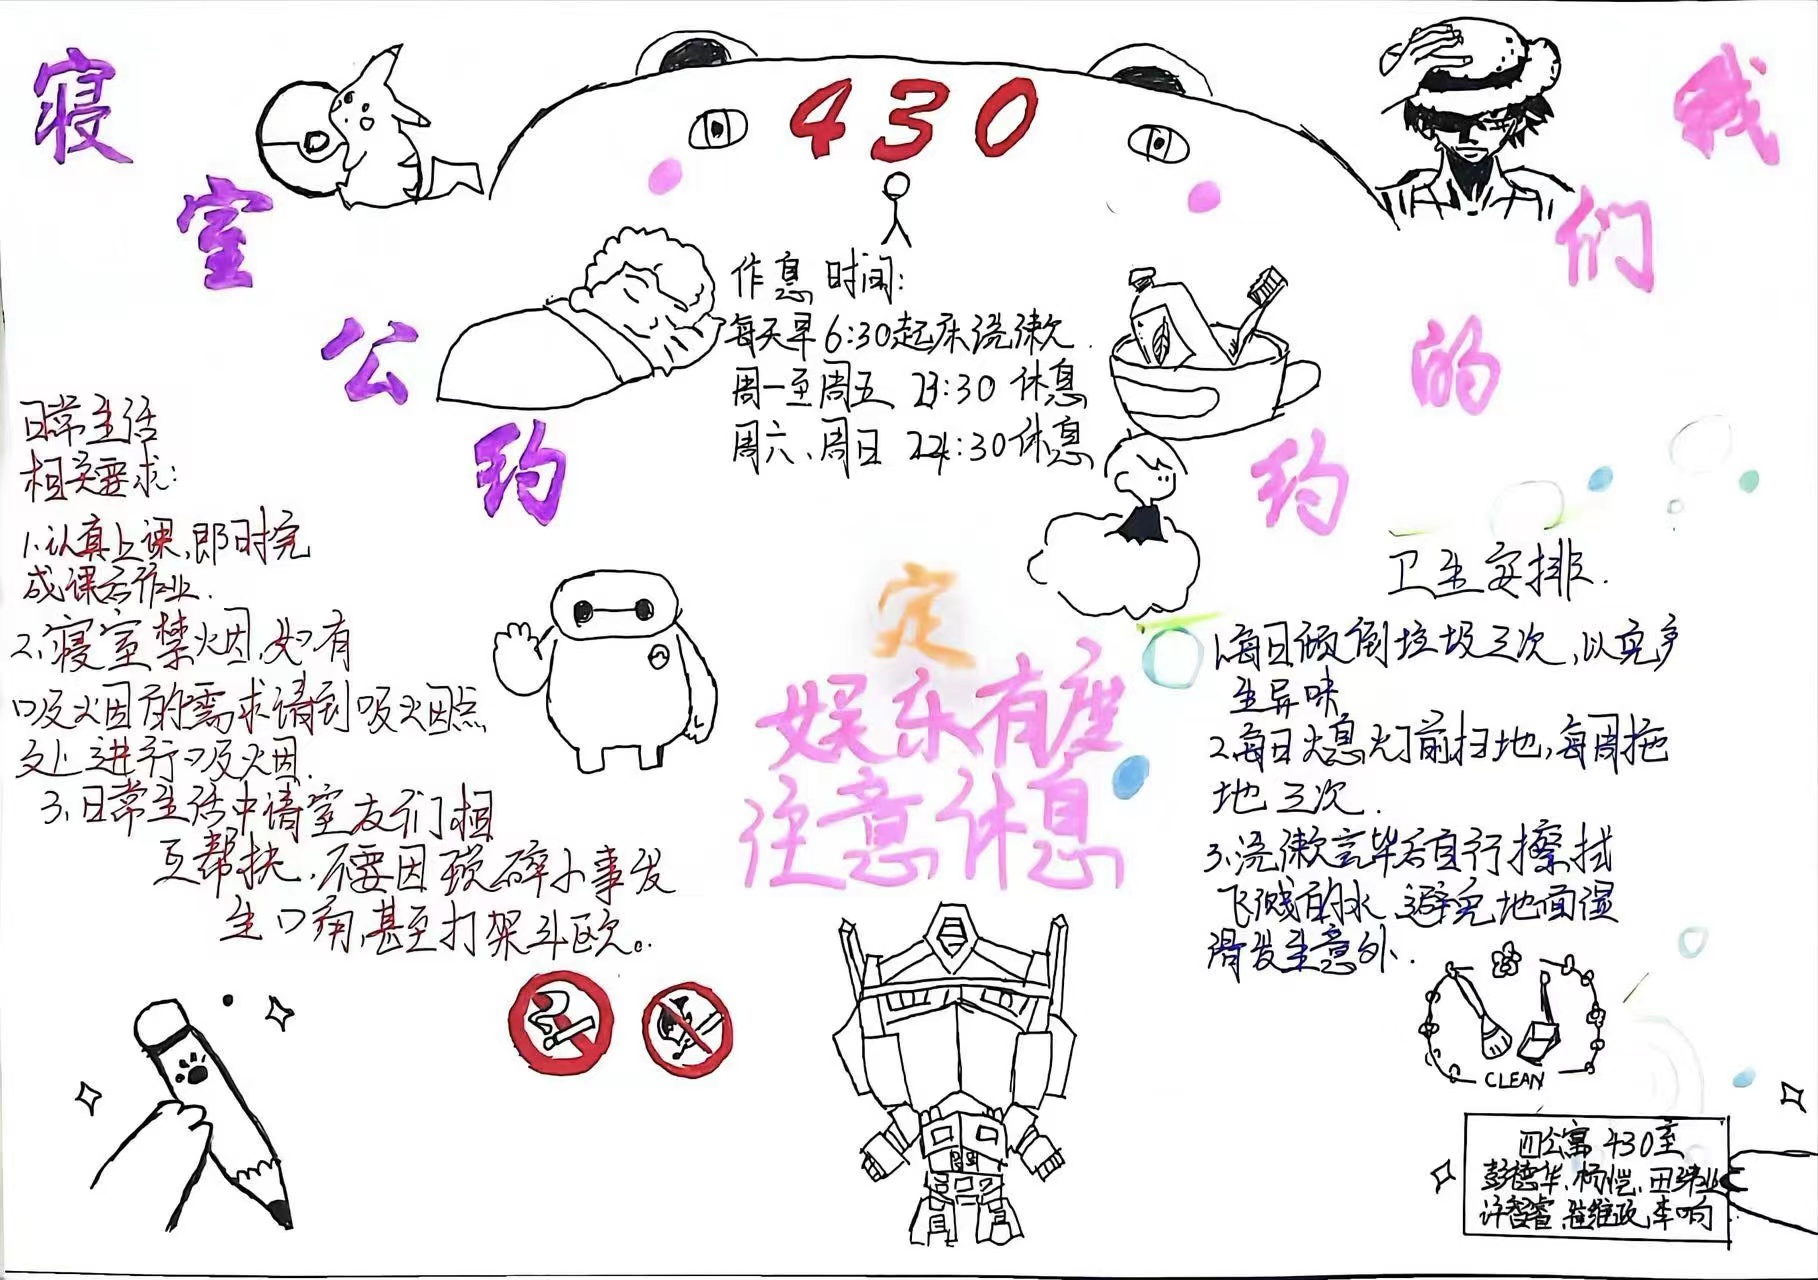 430
寝室公约
我们的约定
作息时间:
每天早6:30起床洗漱.
周一至周五 23:30 休息
周六、周日 24:30休息
日常生活
相关要求:
1.认真上课,即时完
成课后作业.
2.寝室禁火因,如有
吸火因的需求请到吸火因点
处进行吸火因.
3.日常生活中请室友们相
互帮扶,不要因琐碎小事发
生口角,甚至打架斗殴。
娱乐有度
注意休息
卫生安排.
1.每日倾倒垃圾三次,以免产
生异味
2.每日火息灯前扫地,每周拖
地三次.
3.洗漱完毕后自行擦拭
飞溅的水,避免地面湿
滑发生意外.
CLEAN
四公寓430室
彭德华、杨恺、田
许智睿、崔维政、李响